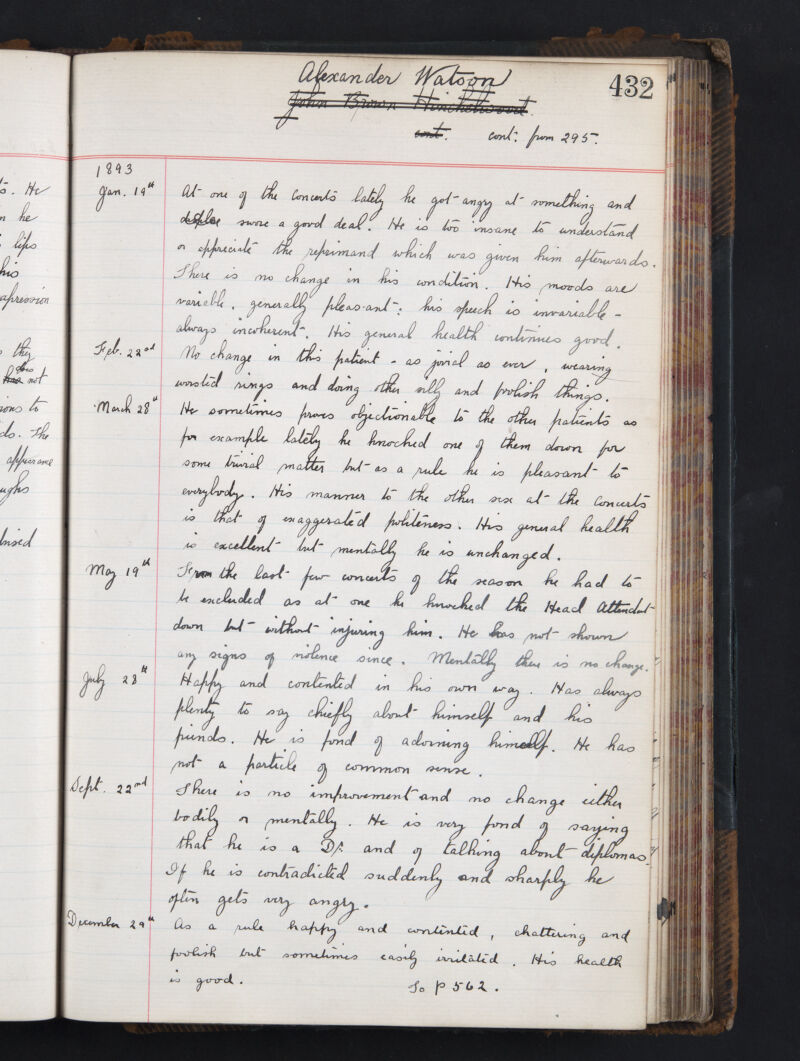 Alexander Watson
432
John Brown Hinchelwood.
cont. cont: from 295.
1893
Jan. 19th At one of the concerts lately he got angry at something and
swore a good deal. He is too insane to understand
or appreciate the reprimand which was given him afterwards.
There is no change in his condition. His moods are
variable, generally pleasant: his speech is invariable -
always incoherent. His general health continues good.
Feb. 22nd No change in this patient - as jovial as ever, wearing
worsted rings and doing other silly and foolish things.
March 28th He sometimes proves objectionable to the other patients as
for example lately he knocked one of them down for
some trivial matter but as a rule he is pleasant to
everybody. His manner to the other sex at the concerts
is that of exaggerated politeness. His general health
is excellent but mentally he is unchanged.
May 19th From the last few concerts of the season he had to
be excluded as at one he knocked the Head Attendant
down but without injuring him. He has not shown
any signs of violence since. Mentally there is no change.
July 28th Happy and contented in his own way. Has always
plenty to say chiefly about himself and his
friends. He is fond of adorning himself. He has
not a particle of common sense.
Sept. 22nd There is no improvement and no change either
bodily or mentally. He is very fond of saying
that he is a Dr. and of talking about diplomas.
If he is contradicted suddenly and sharply he
often gets very angry.
December 29th As a rule happy and contented, chattering and
foolish but sometimes easily irritated. His health
is good. To p 562.
He
he
lips
his
they
does
has not
to
The
appearance